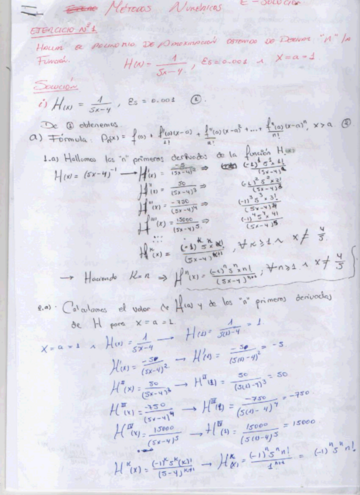 Métodos Numéricos
EJERCICIO Nº 1
HALLAR EL POLINOMIO DE APROXIMACIÓN DE "n" LA
FUNCIÓN H(x) = 1/(5x-4), Es=0.001 ∧ x=a=1
Solución
i) H(x) = 1/(5x-4), Es=0.001
De obtenemos
a) Fórmula: Pn(x) = f(a) + f'(a)(x-a)/1! + f''(a)(x-a)²/2! + ... + fⁿ(a)(x-a)ⁿ/n!, x > a.
1.a) Hallamos los "n" primeros derivados de la función H(x)
H(x) = (5x-4)⁻¹ → H'(x) = -5/(5x-4)² ⇒ (-1)¹5¹1!/(5x-4)²
H''(x) = 50/(5x-4)³ ⇒ (-1)²5²2!/(5x-4)³
H'''(x) = -750/(5x-4)⁴ ⇒ (-1)³5³3!/(5x-4)⁴
H''''(x) = 15000/(5x-4)⁵ ⇒ (-1)⁴5⁴4!/(5x-4)⁵
⋮
Hᴷ(x) = (-1)ᴷ5ᴷK!/(5x-4)ᴷ⁺¹, ∀ K ≥ 1 ∧ x ≠ 4/5
→ Haciendo K=n → Hⁿ(x) = (-1)ⁿ5ⁿn!/(5x-4)ⁿ⁺¹, ∀ n ≥ 1 ∧ x ≠ 4/5
2.a) Calculamos el valor de H(x) y de los "n" primeros derivados
de H para x=a=1
x=a=1 ∧ H(x) = 1/(5x-4) → H(1) = 1/(5(1)-4) = 1
H'(x) = -5/(5x-4)² → H'(1) = -5/(5(1)-4)² = -5
H''(x) = 50/(5x-4)³ → H''(1) = 50/(5(1)-4)³ = 50
H'''(x) = -750/(5x-4)⁴ → H'''(1) = -750/(5(1)-4)⁴ = -750
H''''(x) = 15000/(5x-4)⁵ → H''''(1) = 15000/(5(1)-4)⁵ = 15000
Hⁿ(x) = (-1)ⁿ5ⁿ(n)!/(5x-4)ⁿ⁺¹ → Hⁿ(1) = (-1)ⁿ5ⁿn!/1ⁿ⁺¹ = (-1)ⁿ5ⁿn!